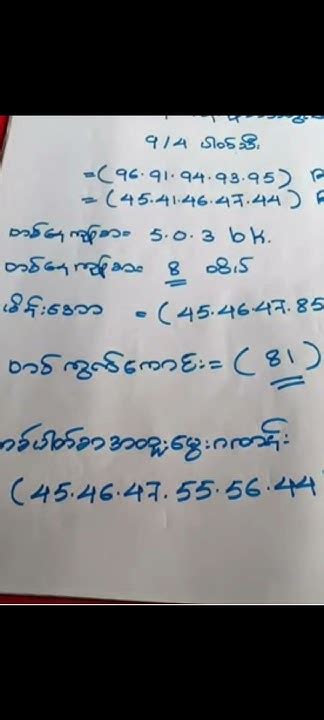 9/4 ပါတ်သီး
=(96.91.94.93.95)
=(45.41.46.47.44)
တစ်နေ့ကျိုးစား= 5.0.3 bk.
တစ်နေ့ကျိုးစား= 8 ထိပ်
စိန်းသော = (45.46.47.85
တစ်ကွက်ကောင်း= (81)
တစ်ပါတ်စာအထူးမွေးဂဏန်း
(45.46.47.55.56.44)